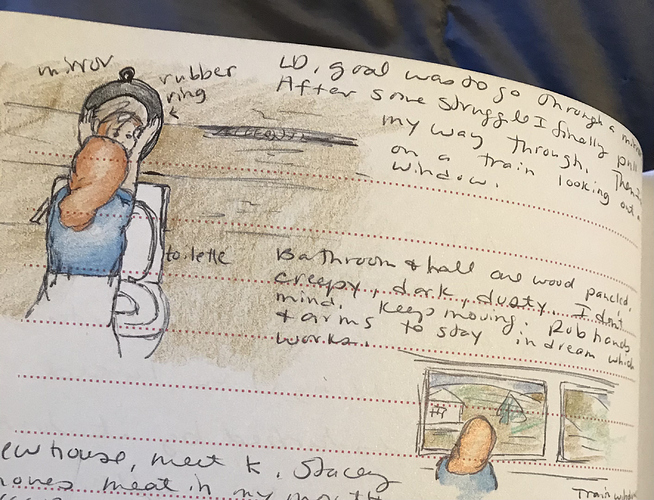 mirror
rubber
ring
LD, goal was to go through a
After some struggle I finally pull
my way through. Then I
on a train looking out a
window.
toilette
Bathroom & hall are wood paneled,
creepy, dark, dusty. I don't
mind. Keeps moving. Rub hands
& arms to stay in dream which
works.
house, meet K. Stacey
meat in my mouth
Train window